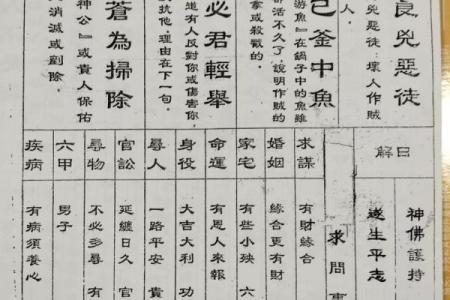 兇惡徒
兇惡徒：壞人作賊
人。
己釜中魚
游魚』在鍋子中的魚雖
活不久了，說明作賊的
拿或殺戳的。
必君輕舉
道有人反對你或傷害你，
抗他，理由在下一句。
蒼為掃除
神公』或貴人保佑
消滅或剷除。
解曰
神佛護持
遂生平志
求問事
求謀 有財緣合
婚姻 緣合更有財
家宅 有些小殃 六
命運 有恩人來報
身役 大吉大利 功
尋人 一路平安 貴
官訟 延纏日久 官
尋物 不必多尋 有
六甲 男子
疾病 有病須養心